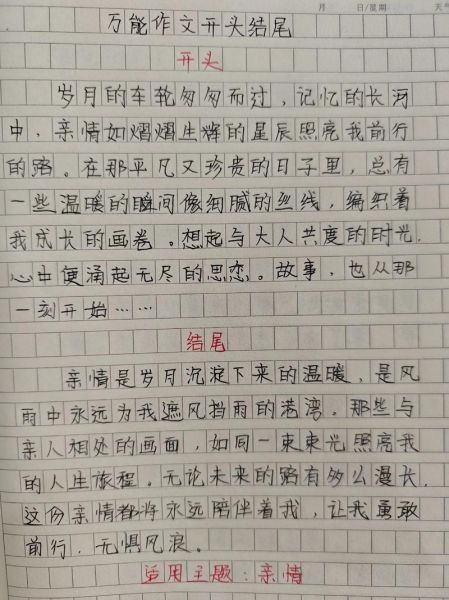 月 日/星期 天气
万能作文开头结尾
开头
岁月的车轮匆匆而过，记忆的长河
中，亲情如熠熠生辉的星辰照亮我前行
的路。在那平凡又珍贵的日子里，总有
一些温暖的瞬间像细腻的丝线，编织着
我成长的画卷。想起与大人共度的时光，
心中便涌起无尽的思恋。故事，也从那
一刻开始……
结尾
亲情是岁月沉淀下来的温暖，是风
雨中永远为我遮风挡雨的港湾。那些与
亲人相处的画面，如同一束束光照亮我
的人生旅程。无论未来的路有多么漫长，
这份亲情都将永远陪伴着我，让我勇敢
前行，无惧风浪。
适用主题：亲情